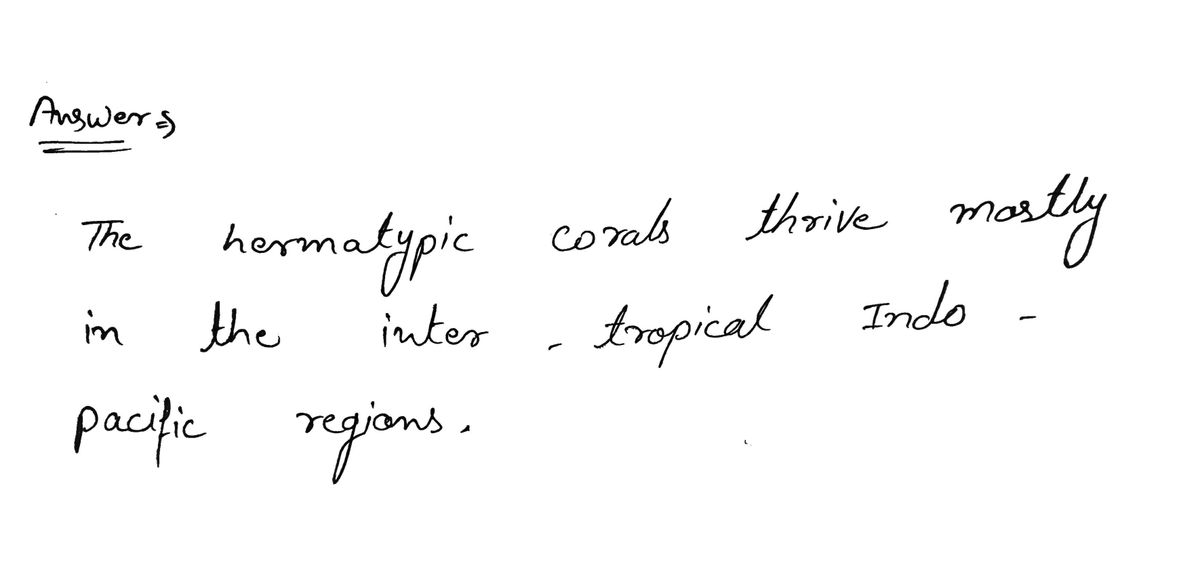 Answer ⇒
The hermatypic corals thrive mostly
in the inter - tropical Indo -
pacific regions.